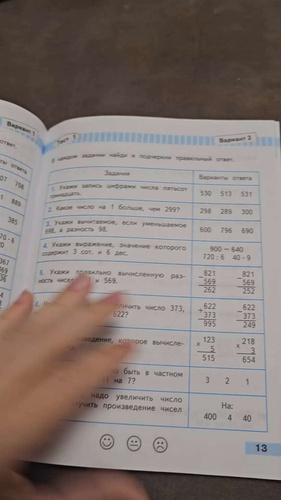 Вариант 1
ответ.
ты ответа
07 798
1 889
385
Тест 5
Вариант 2
В каждом задании найди и подчеркни правильный ответ.
Задания
Варианты ответа
1. Укажи запись цифрами числа пятьсот
тринадцать.
530 513 531
2. Какое число на 1 больше, чем 299?
298 289 300
3. Укажи вычитаемое, если уменьшаемое
698, а разность 98.
600 796 690
4. Укажи выражение, значение которого
содержит 3 сот. и 6 дес.
900 − 640
720 : 6 40 · 9
5. Укажи правильно вычисленную раз-
ность чисел и 569.
− 821 − 821
569 569
262 252
величить число 373,
622?
+ 622 − 622
373 373
995 249
ведение, которое вычисле-
× 123 × 218
5 3
515 654
быть в частном
на 7?
3 2 1
надо увеличить число
лучить произведение чисел
На:
400 4 40
13